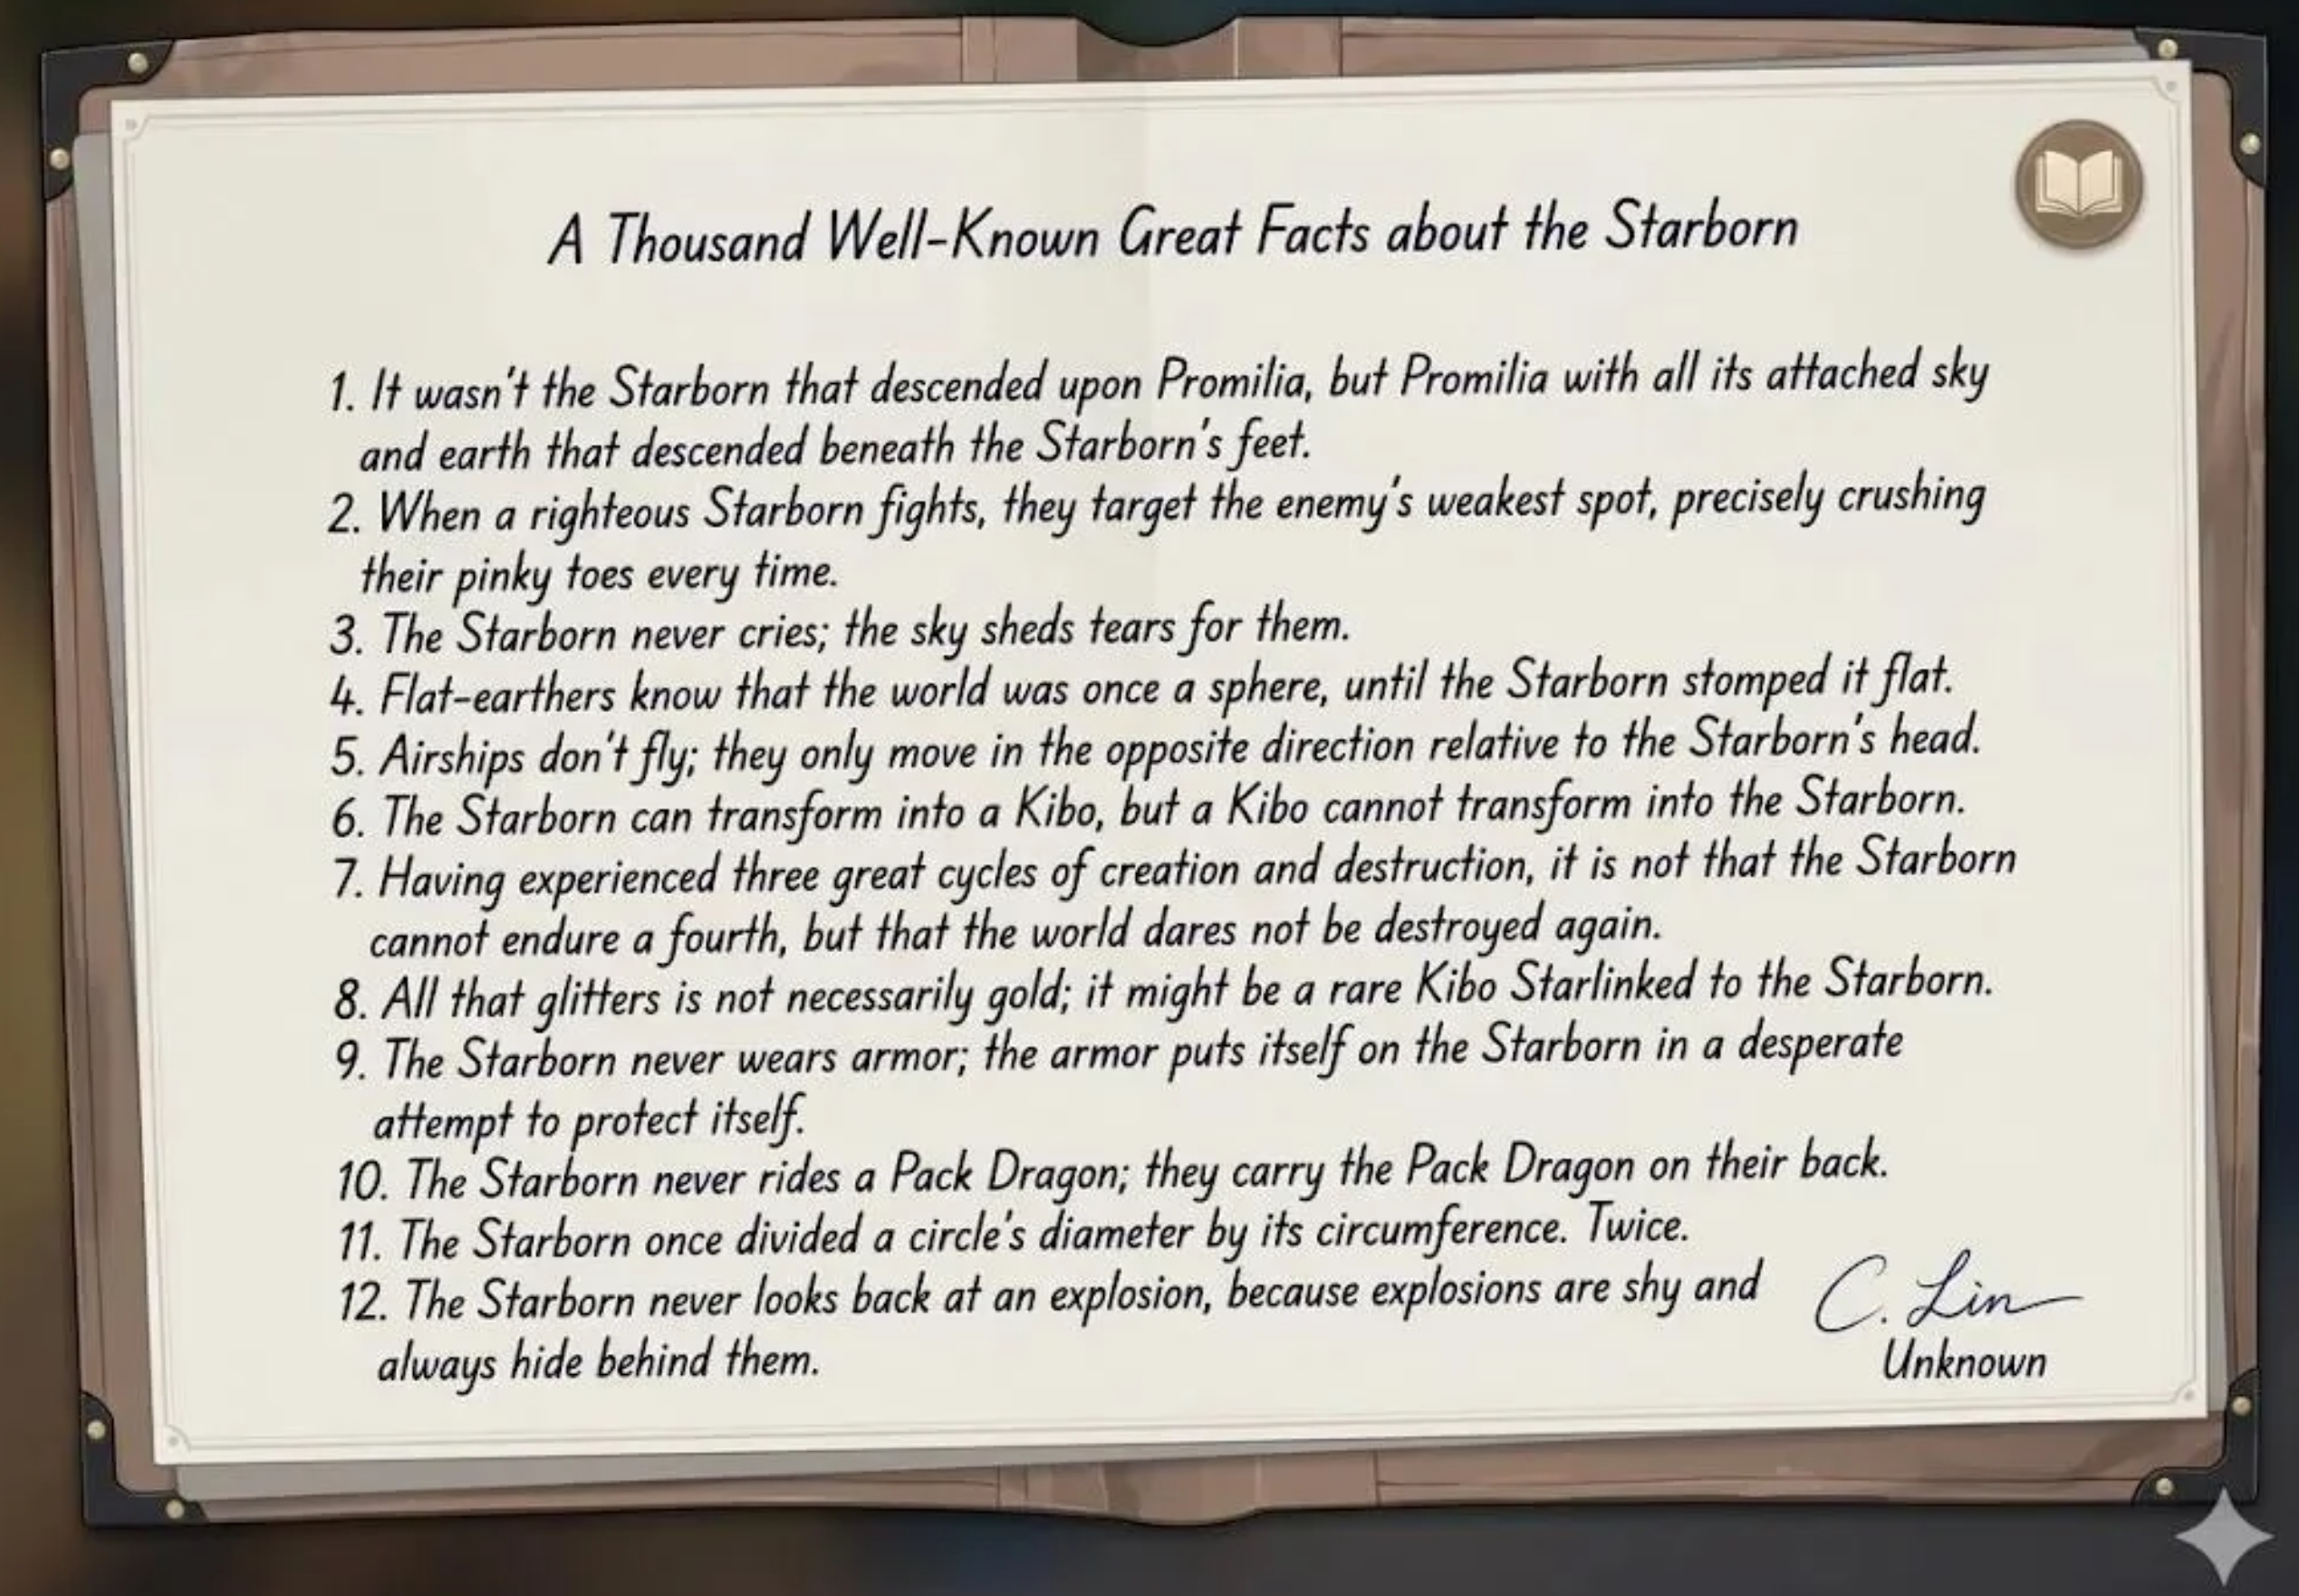 A Thousand Well-Known Great Facts about the Starborn
1. It wasn't the Starborn that descended upon Promilia, but Promilia with all its attached sky
and earth that descended beneath the Starborn's feet.
2. When a righteous Starborn fights, they target the enemy's weakest spot, precisely crushing
their pinky toes every time.
3. The Starborn never cries; the sky sheds tears for them.
4. Flat-earthers know that the world was once a sphere, until the Starborn stomped it flat.
5. Airships don't fly; they only move in the opposite direction relative to the Starborn's head.
6. The Starborn can transform into a Kibo, but a Kibo cannot transform into the Starborn.
7. Having experienced three great cycles of creation and destruction, it is not that the Starborn
cannot endure a fourth, but that the world dares not be destroyed again.
8. All that glitters is not necessarily gold; it might be a rare Kibo Starlinked to the Starborn.
9. The Starborn never wears armor; the armor puts itself on the Starborn in a desperate
attempt to protect itself.
10. The Starborn never rides a Pack Dragon; they carry the Pack Dragon on their back.
11. The Starborn once divided a circle's diameter by its circumference. Twice.
12. The Starborn never looks back at an explosion, because explosions are shy and
always hide behind them.
C. Lin
Unknown